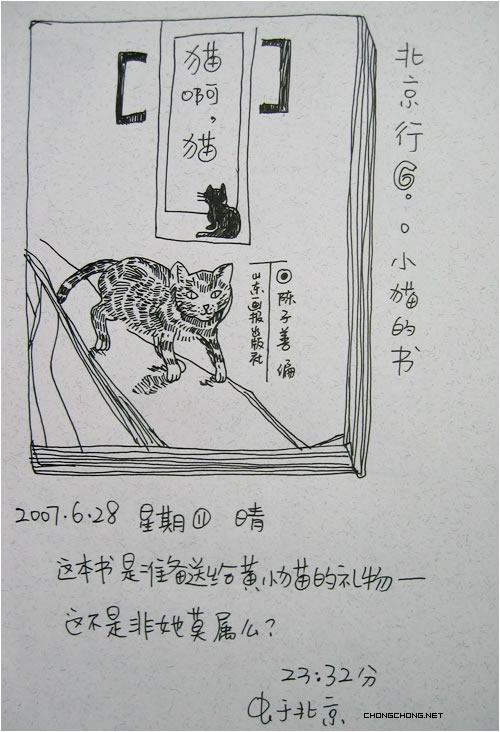 猫啊，猫
陈子善 编
山东画报出版社
北京行⑥。。小猫的书
2007.6.28 星期四 晴
这本书是准备送给黄小猫的礼物—
这不是非她莫属么？
23:32分
虫于北京
CHONGCHONG.NET